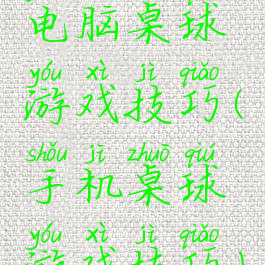 电脑桌球
yóu xì jì qiǎo
游戏技巧(
shǒu jī zhuō qiú
手机桌球
yóu xì jì qiǎo
游戏技巧)